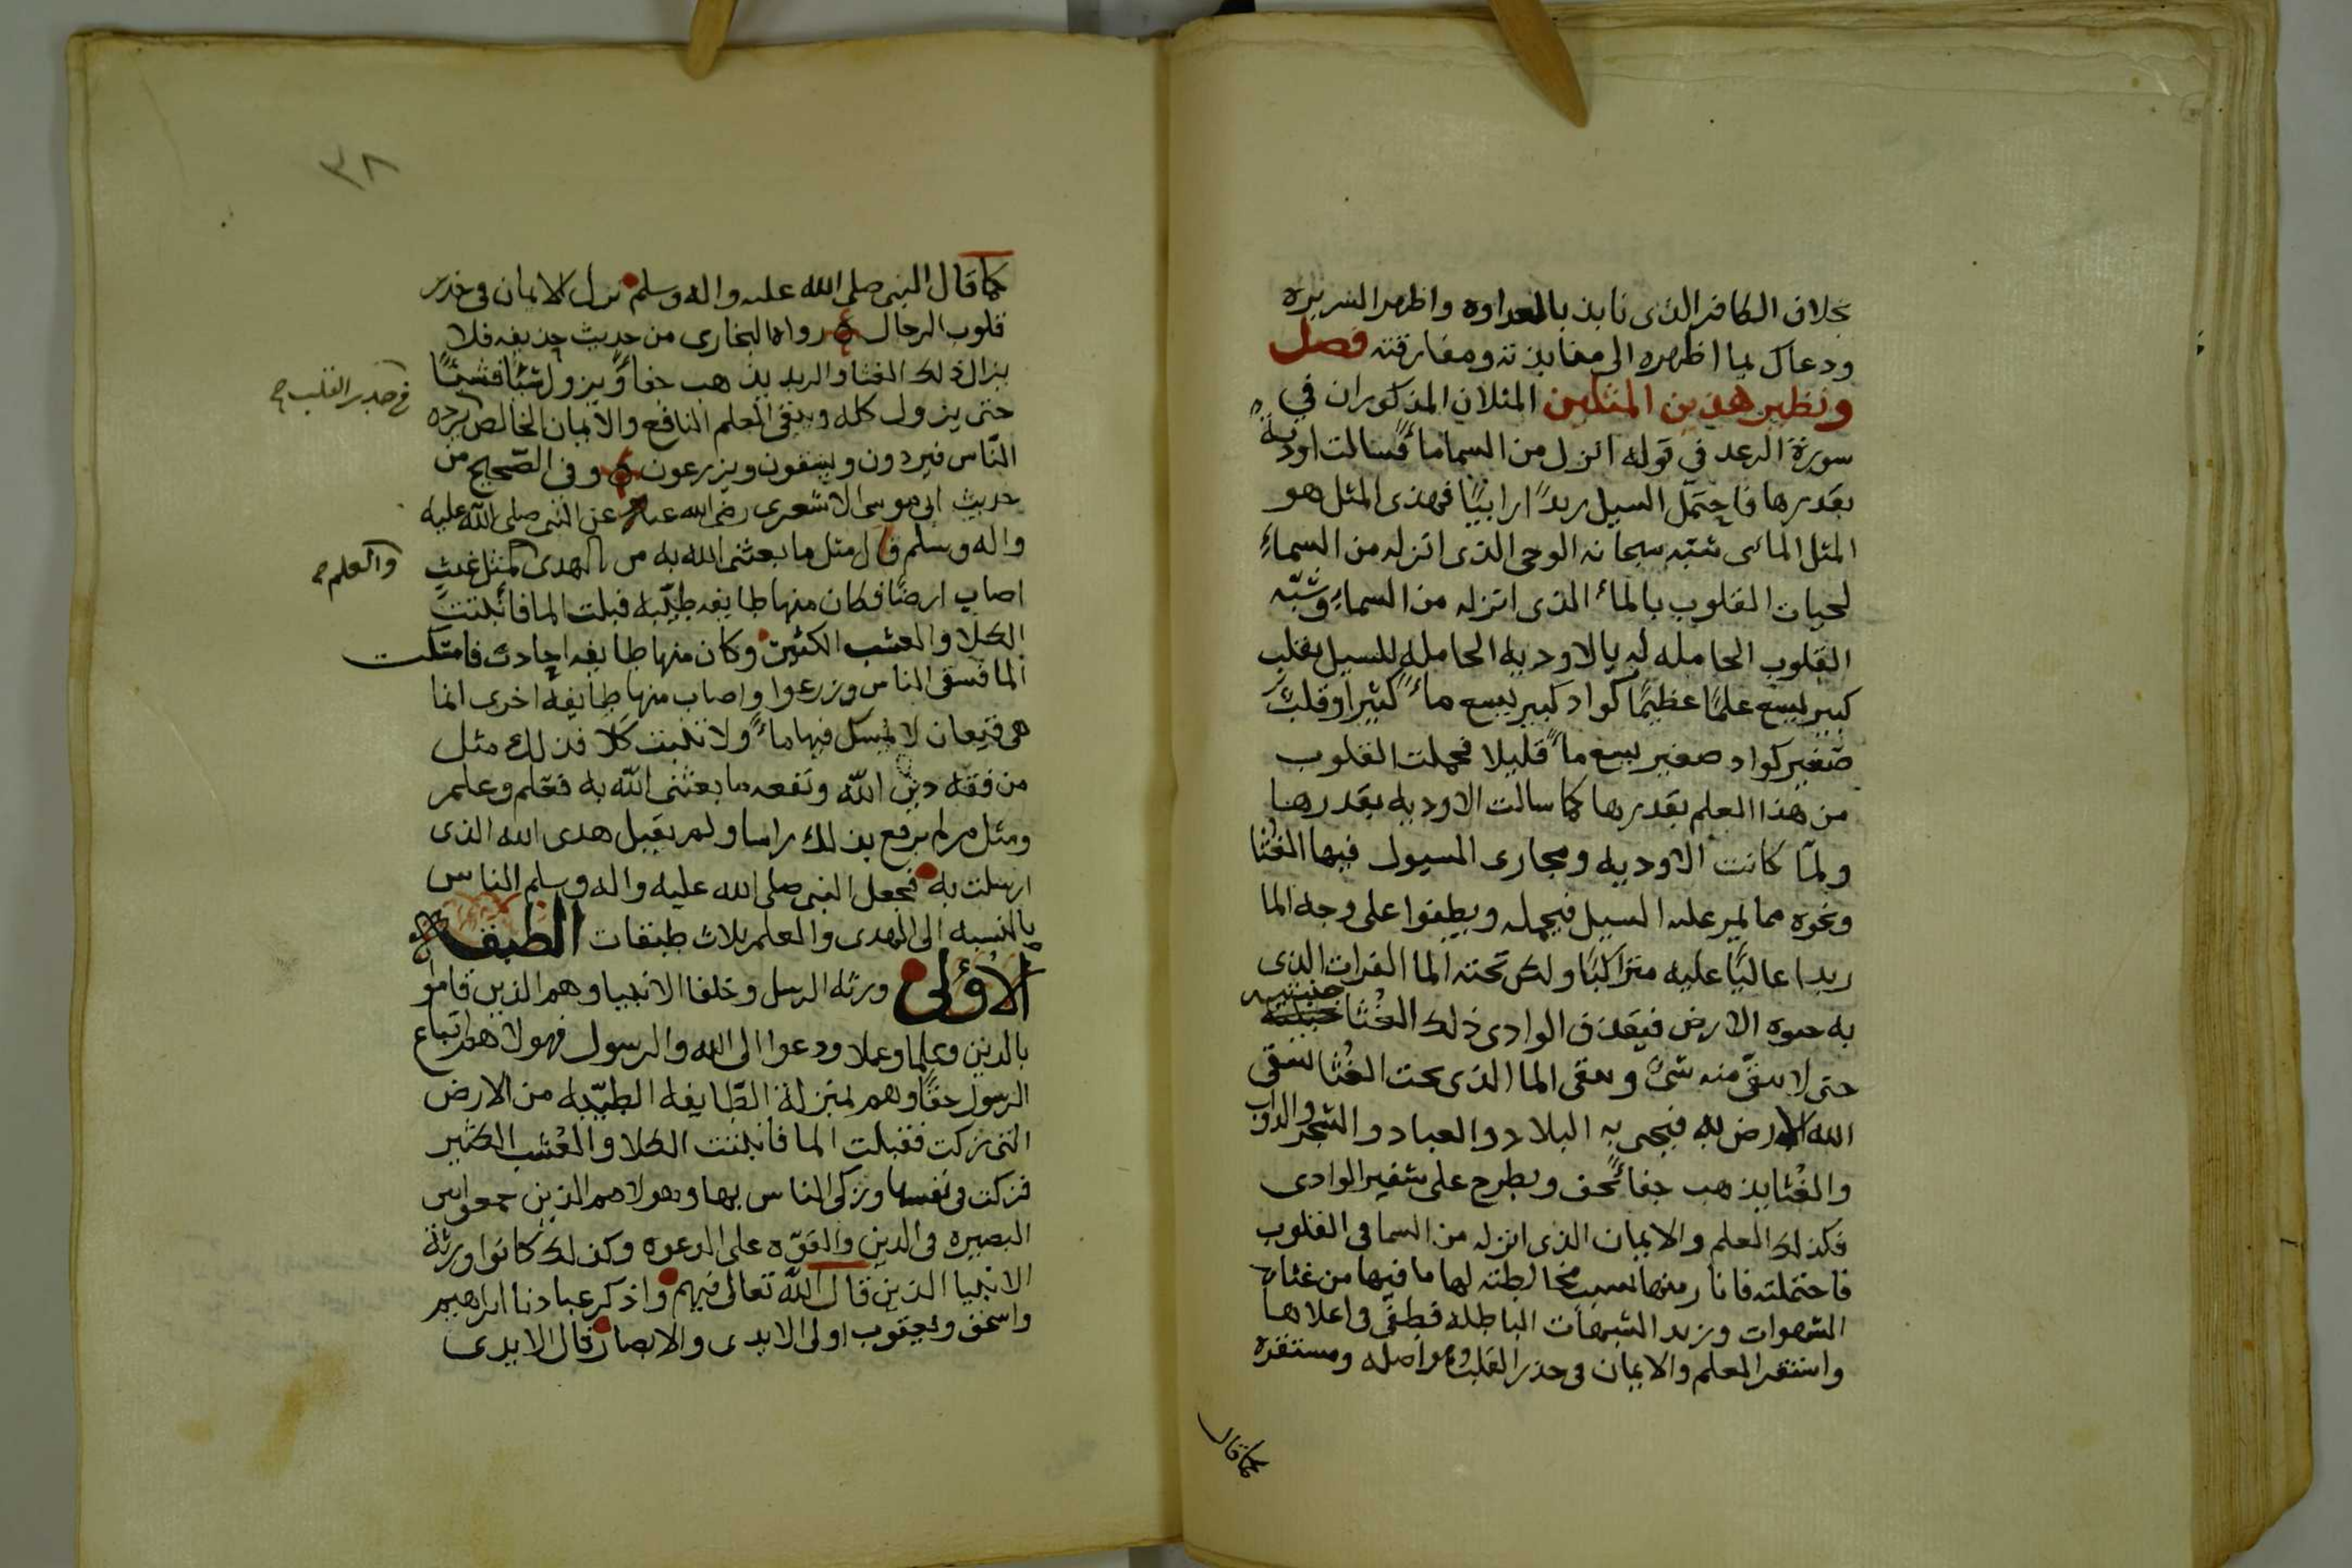 بخلاف الكافر الذى نابذ بالعداوه واظهر السريره
ودعاك بما اظهره الى منابذته ومفارقته فصل
ونظير هذين المثلين المثلان المذكوران في
سورة الرعد في قوله انزل من السما ماءً فسالت اودية
بقدرها فاحتمل السيل زبدًا رابيًا فهذى المثل هو
المثل المائى شبّه سبحانه الوحى الذى انزله من السماءِ
لحيات القلوب بالماء الذى انزله من السماءِ وشبّه
القلوب الحامله له بالاوديه الحامله للسيل فقلب
كبير يسع علمًا عظيمًا كواد كبير يسع ماءً كثيرا وقلب
صغير كواد صغير يسع ماءً قليلا فحملت القلوب
من هذا العلم بقدرها كما سالت الاوديه بقدرها
ولمّا كانت الاوديه ومجارى السيول فيها الغُثا
ونحوه مما يمر عليه السيل فيحمله ويطفوا على وجه الما
زبدا عاليًا عليه متراكبًا ولكن تحته الما الفرات الذى
به حيوه الارض فيقذف الوادى ذلك الغُثا جنبتيه
حتى لا يبقى منه شىء ويبقى الما الذى تحت الغُثا يسقى
الله الارض به فيحى به البلاد والعباد والشجر والدواب
والغُثا يذهب جفاءً يجف ويطرح على شفير الوادى
فكذلك العلم والايمان الذى انزله من السما فى القلوب
فاحتملته فاثار منها بسبب مخالطته لها ما فيها من غثاء
الشهوات وزبد الشبهات الباطله فطفى فى اعلاها
واستقر العلم والايمان فى جذر القلب وهو اصله ومستقره
كما قال
٣٨
كما قال النبى صلى الله عليه واله وسلم نزل الايمان فى جذر
قلوب الرجال رواه البخارى من حديث حذيفه فلا
يزال ذلك الغثا والزبد يذهب جفاءً ويزول شئًا فشئًا
حتى يزول كله ويبقى العلم النافع والايمان الخالص يرده
فى جذر القلب
النّاس فيردون ويسقون ويزرعون وفى الصّحيح من
حديث ابى موسى الاشعرى رضى الله عنه عن النبى صلى الله عليه
واله وسلم قال مثل ما بعثنى الله به من الهدى كمثل غيث
والعلم
اصاب ارضًا فكان منها طايفه طيّبه قبلت الما فانبتت
الكلا والعشب الكثير وكان منها طايفه اجادب فامسكت
الما فسقى الناس وزرعوا واصاب منها طايفه اخرى انما
هى قيعان لا تمسك فيها ماءً ولا تنبت كلا فذلك مثل
من فقه دين الله ونفعه ما بعثنى الله به فعلم وعلم
ومثل من لم يرفع بذلك راسا ولم يقبل هدى الله الذى
ارسلت به فجعل النبى صلى الله عليه واله وسلم الناس
بالنسبه الى الهدى والعلم ثلاث طبقات الطبقه
الاولى ورثه الرسل وخلفا الانبيا وهم الذين قاموا
بالدين وعلما وعملا ودعوا الى الله والرسول فهولا هم اتباع
الرسول حقًا وهم بمنزلة الطّايفه الطيّبه من الارض
التى زكت فقبلت الما فانبتت الكلا والعُشب الكثير
فزكت فى نفسها وزكى الناس بها وهولا هم الذين جمعوا بين
البصيره فى الدين والقوّه على الدعوه وكذلك كانوا ورثة
الانبيا الذين قال الله تعالى فيهم واذكر عبادنا ابراهيم
واسحق ويعقوب اولى الايدى والابصار قال الايدى